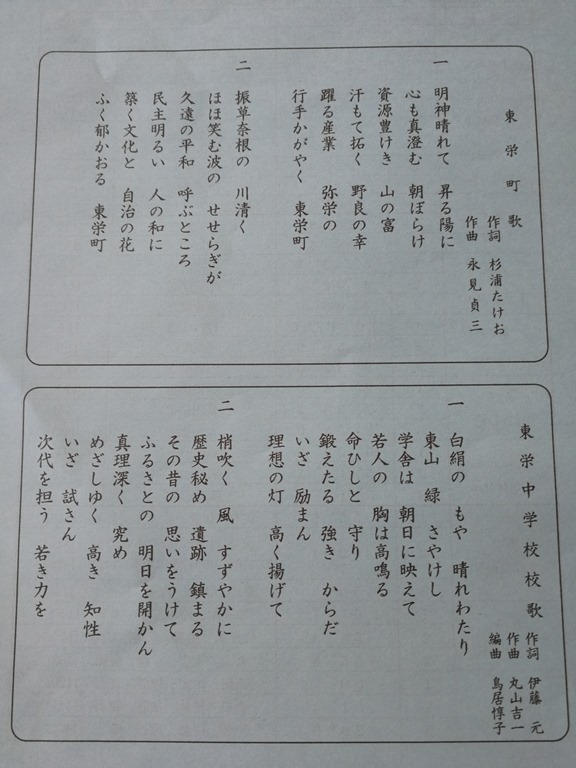 東栄町歌
作詞 杉浦たけお
作曲 永見貞三
一
明神晴れて 昇る陽に
心も真澄む 朝ぼらけ
資源豊けき 山の富
汗もて拓く 野良の幸
躍る産業 弥栄の
行手かがやく 東栄町
二
振草奈根の 川清く
ほほ笑む波の せせらぎが
久遠の平和 呼ぶところ
民主明るい 人の和に
築く文化と 自治の花
ふく郁かおる 東栄町
東栄中学校校歌
作詞 伊藤 元
作曲 丸山吉一
編曲 鳥居惇子
一
白絹の もや 晴れわたり
東山 緑 さやけし
学舎は 朝日に映えて
若人の 胸は高鳴る
命ひしと 守り
鍛えたる 強き からだ
いざ 励まん
理想の灯 高く揚げて
二
梢吹く 風 すずやかに
歴史秘め 遺跡 鎮まる
その昔の 思いをうけて
ふるさとの 明日を開かん
真理深く 究め
めざしゆく 高き 知性
いざ 試さん
次代を担う 若き力を